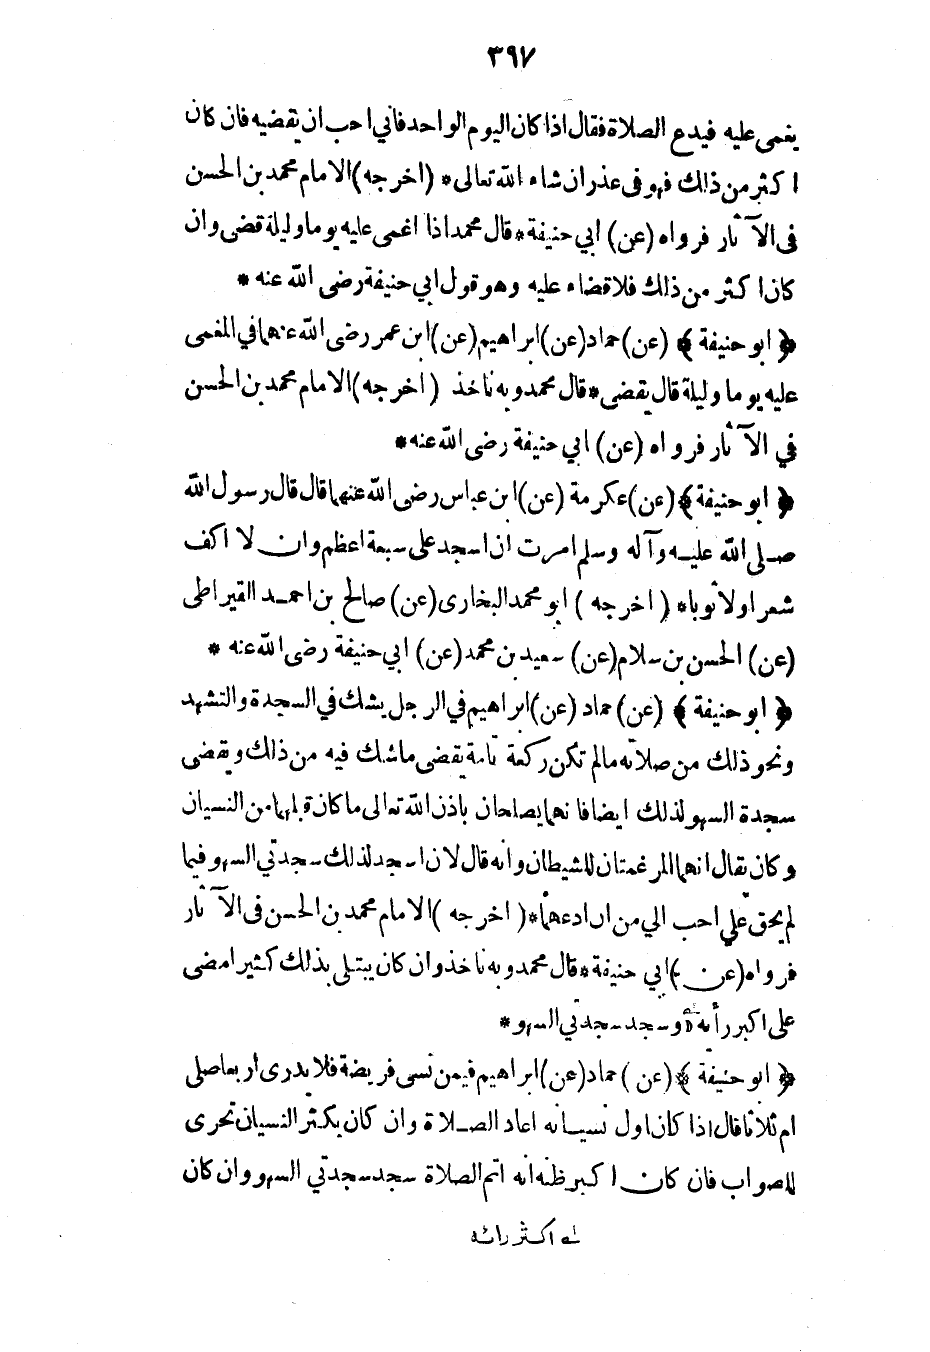 ٣٩٧
يغمى عليه فيدع الصلاة فقال اذا كان اليوم الواحد فاني احب ان يقضيه فان كان
اكثر من ذلك فهو فى عذر ان شاء الله تعالى * (اخرجه) الامام محمد بن الحسن
فى الآثار فرواه (عن) ابي حنيفة * قال محمد اذا اغمى عليه يوما وليلة قضى وان
كان اكثر من ذلك فلا قضاء عليه وهو قول ابي حنيفة رضى الله عنه *
﴿ ابو حنيفة ﴾ (عن) حماد (عن) ابراهيم (عن) ابن عمر رضى الله عنهما في المغمى
عليه يوما وليلة قال يقضى * قال محمد وبه ناخذ (اخرجه) الامام محمد بن الحسن
في الآثار فرواه (عن) ابي حنيفة رضى الله عنه *
﴿ ابو حنيفة ﴾ (عن) عكرمة (عن) ابن عباس رضى الله عنهما قال قال رسول الله
صلى الله عليه وآله وسلم امرت ان اسجد على سبعة اعظم وان لا اكف
شعرا ولا ثوبا * (اخرجه) ابو محمد البخارى (عن) صالح بن احمد القيراطى
(عن) الحسن بن سلام (عن) سعيد بن محمد (عن) ابي حنيفة رضى الله عنه *
﴿ ابو حنيفة ﴾ (عن) حماد (عن) ابراهيم في الرجل يشك في السجدة والتشهد
ونحو ذلك من صلاته مالم تكن ركعة تامة يقضى ما شك فيه من ذلك ويقضى
سجدة السهو لذلك ايضا فانهما يصلحان باذن الله تعالى ما كان قبلهما من النسيان
وكان يقال انهما المرغمتان للشيطان وانه قال لان اسجد لذلك سجدتي السهو فيما
لم يحق علي احب الي من ان ادعهما * (اخرجه) الامام محمد بن الحسن فى الآثار
فرواه (عن) ابي حنيفة * قال محمد وبه ناخذ وان كان يبتلى بذلك كثيرا مضى
على اكبر رأيه وسجد سجدتي السهو *
﴿ ابو حنيفة ﴾ (عن) حماد (عن) ابراهيم فيمن نسى فريضة فلا يدرى اربعا صلى
ام ثلاثا قال اذا كان اول نسيانه اعاد الصلاة وان كان يكثر النسيان تحرى
للصواب فان كان اكبر ظنه انه اتم الصلاة سجد سجدتي السهو وان كان
اكثر رائه